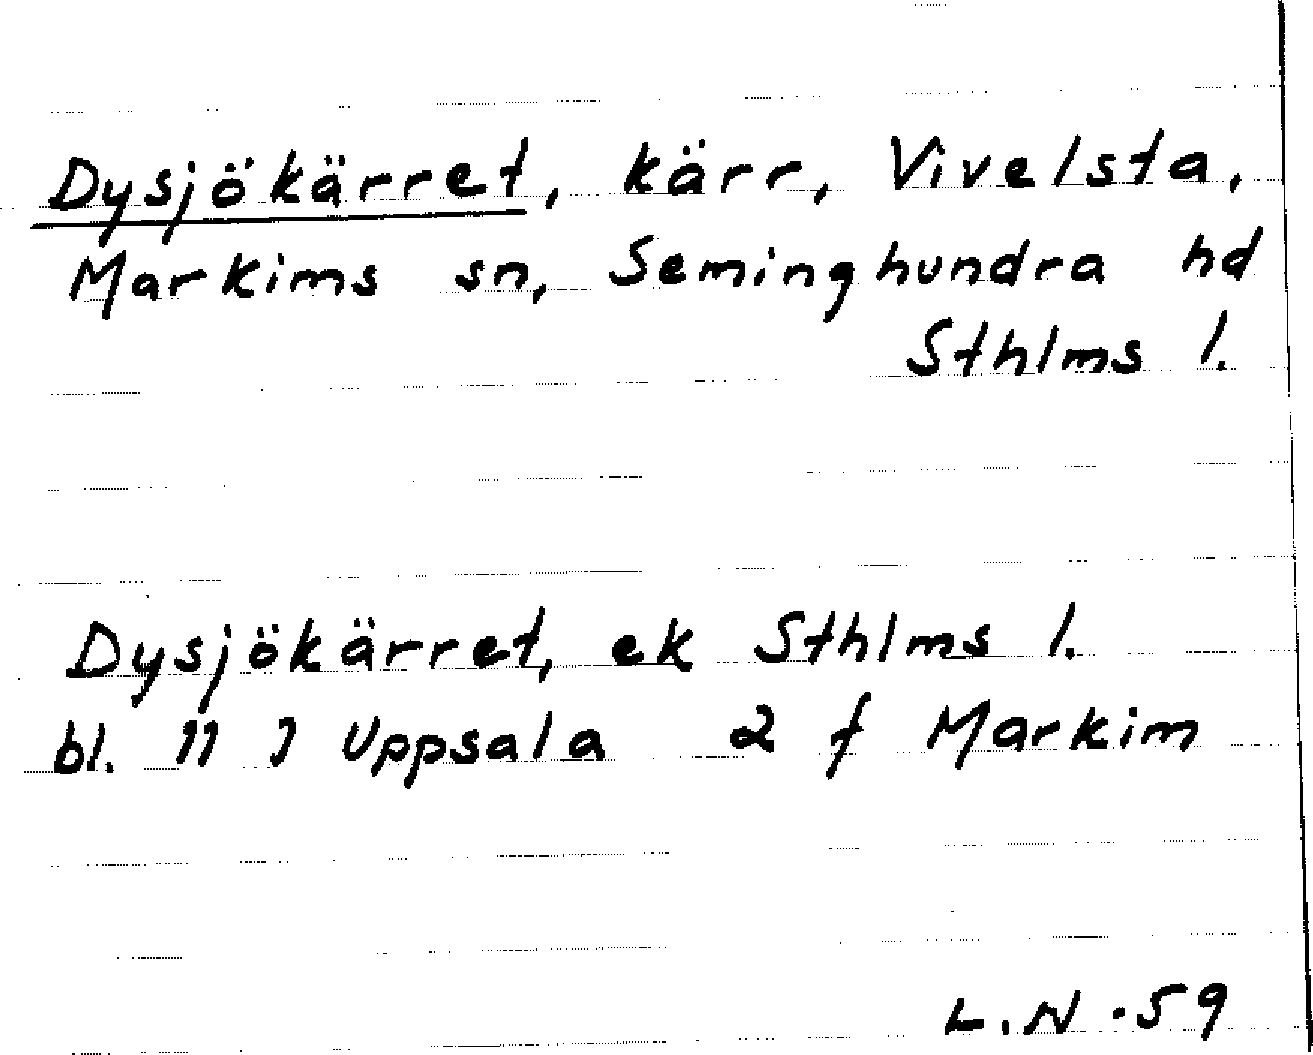 Dysjökärret, kärr, Vivelsta,
Markims sn, Seminghundra hd
Sthlms l.
Dysjökärret, ek Sthlms l.
bl. 11 J Uppsala 2 f Markim
L.N -59